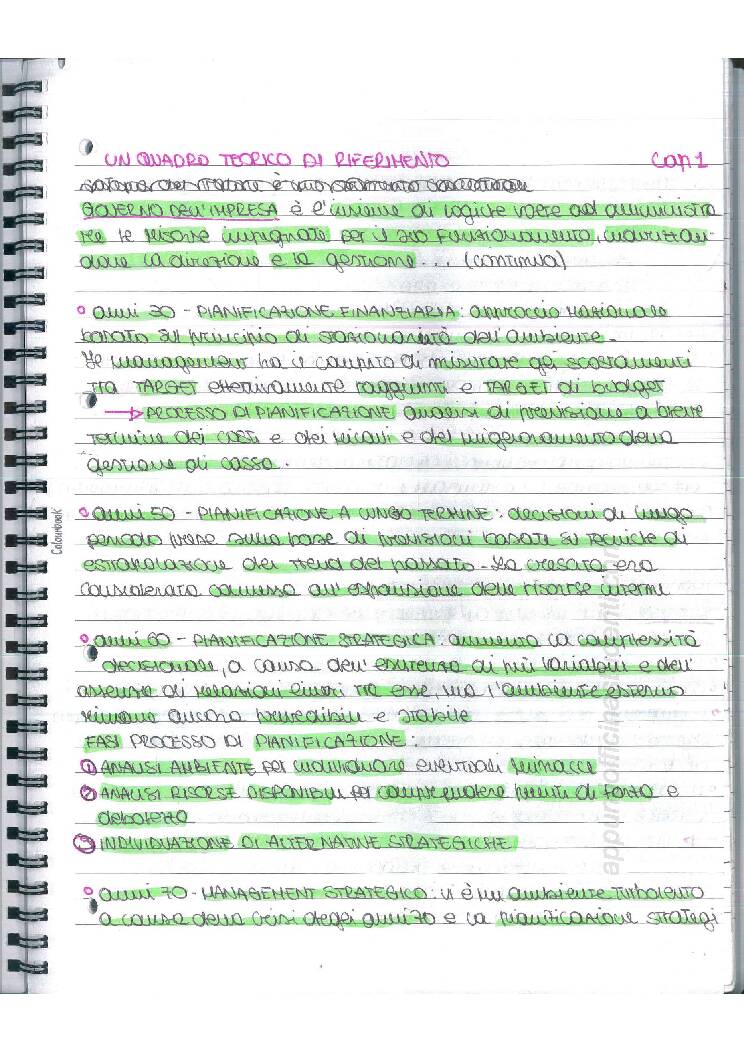 UN QUADRO TEORICO DI RIFERIMENTO Cap 1
GOVERNO DELL'IMPRESA è l'insieme di logiche volte ad amministra
re le risorse impegnate per il suo funzionamento, indirizzan-
done la direzione e la gestione... (continua)
° anni 30 - PIANIFICAZIONE FINANZIARIA: approccio razionale
basato sul principio di stazionarietà dell'ambiente.
Il management ha il compito di misurare gli scostamenti
tra TARGET effettivamente raggiunti e TARGET di budget
→ PROCESSO DI PIANIFICAZIONE analisi di previsione a breve
termine dei costi e dei ricavi e del miglioramento della
gestione di cassa.
° anni 50 - PIANIFICAZIONE A LUNGO TERMINE: decisioni di lungo
periodo prese sulla base di previsioni basata su tecniche di
estrapolazione dei trend del passato - La crescita era
considerata connessa all'espansione delle risorse interne
° anni 60 - PIANIFICAZIONE STRATEGICA: aumenta la complessità
decisionale, a causa dell'esistenza di più variabili e dell'
assenza di relazioni lineari tra esse, ma l'ambiente esterno
rimane ancora prevedibile e stabile
FASI PROCESSO DI PIANIFICAZIONE:
① ANALISI AMBIENTE per individuare eventuali minacce
② ANALISI RISORSE DISPONIBILI per comprendere punti di forza e
debolezza
③ INDIVIDUAZIONE DI ALTERNATIVE STRATEGICHE
° anni 70 - MANAGEMENT STRATEGICO: vi è un ambiente turbolento
a causa della crisi degli anni 70 e la pianificazione strategi
Colourbook